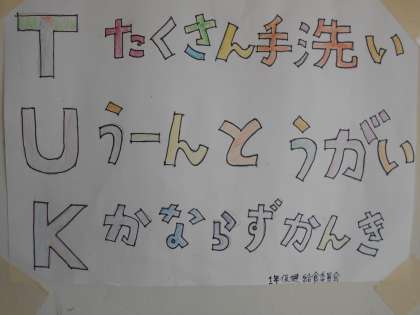 T たくさん手洗い
U うーんとうがい
K かならずかんき
1年保健 給食委員会